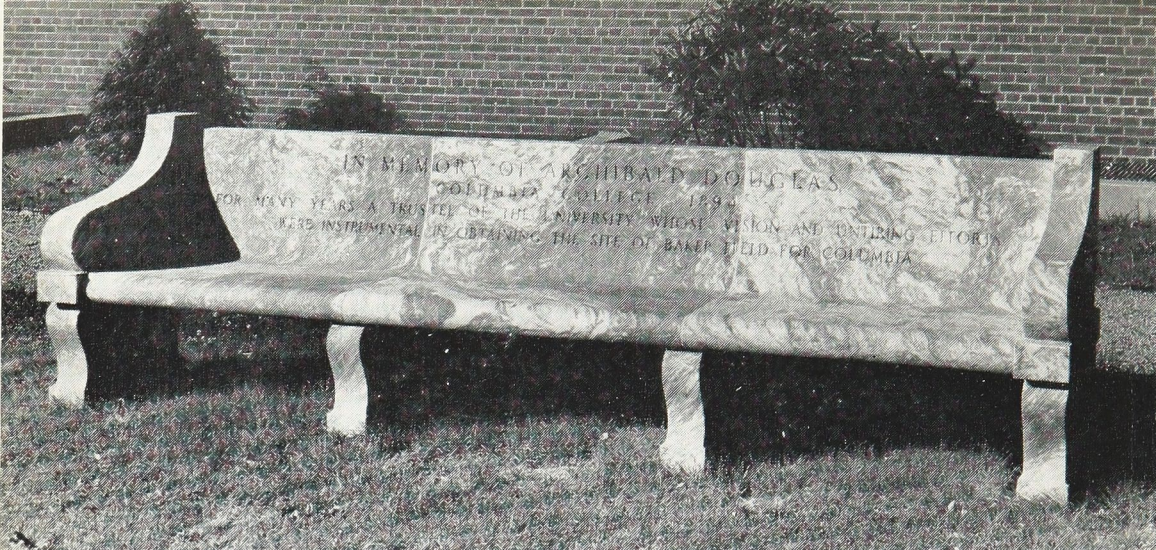 IN MEMORY OF ARCHIBALD DOUGLAS
COLUMBIA COLLEGE 1894
FOR MANY YEARS A TRUSTEE OF THE UNIVERSITY WHOSE VISION AND UNTIRING EFFORTS
WERE INSTRUMENTAL IN OBTAINING THE SITE OF BAKER FIELD FOR COLUMBIA